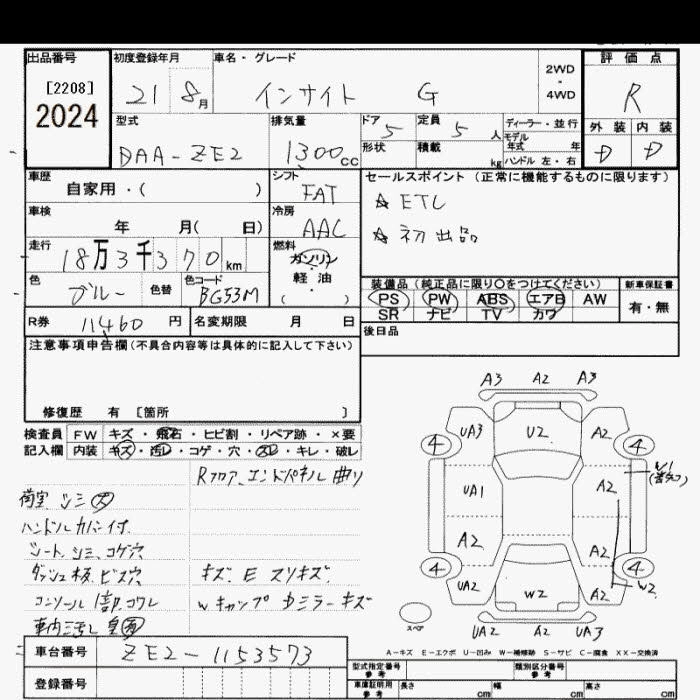 出品番号 初度登録年月 車名・グレード 2WD・4WD 評価点
[2208] 21 8月 インサイト G R
2024
型式 排気量 ドア 5 定員 5人 ディーラー・並行 外装 内装
モデル年式 年
DAA-ZE2 1300cc 形状 積載 kg ハンドル 左・右 D D
車歴 シフト セールスポイント (正常に機能するものに限ります)
自家用・( ) FAT ☆ ETC
車検 冷房 ☆ 初出品
年 月( 日) AAC
走行 燃料
18万3千370km ガソリン
色 色替 色コード 軽油
ブルー BG53M ( ・ )
装備品 (純正品に限り〇をつけてください) 新車保証書
PS PW ABS エアB AW 有・無
SR ナビ TV カワ
R券 11460円 名変期限 月 日 後日品
注意事項申告欄(不具合内容等は具体的に記入して下さい)
修復歴 有 [箇所 ]
検査員 FW キズ・飛石・ヒビ割・リペア跡・×要
記入欄 内装 キズ・汚レ・コゲ・穴・スレ・キレ・破レ
Rフロア、エンドパネル曲リ
荷室 シミ ス
ハンドルカバー付
シート、シミ、コゲ穴
ダッシュ板、ビス穴 キズ、E スリキズ
コンソール1部コワレ W キャップ Dミラーキズ
車内汚レ
A3 A2 A3
4 UA3 U2 A2 4
UA1 A2
A2 A2
4 UA2 W2 A2 4 W2
スペア UA2 A2 UA3
A-キズ E-エクボ U-凹み W-補修跡 S-サビ C-腐食 XX-交換済
車台番号 ZE2-1153573
型式指定番号 参考 類別区分番号 参考
登録番号 車庫証明用 参考 長さ cm 幅 cm 高さ cm